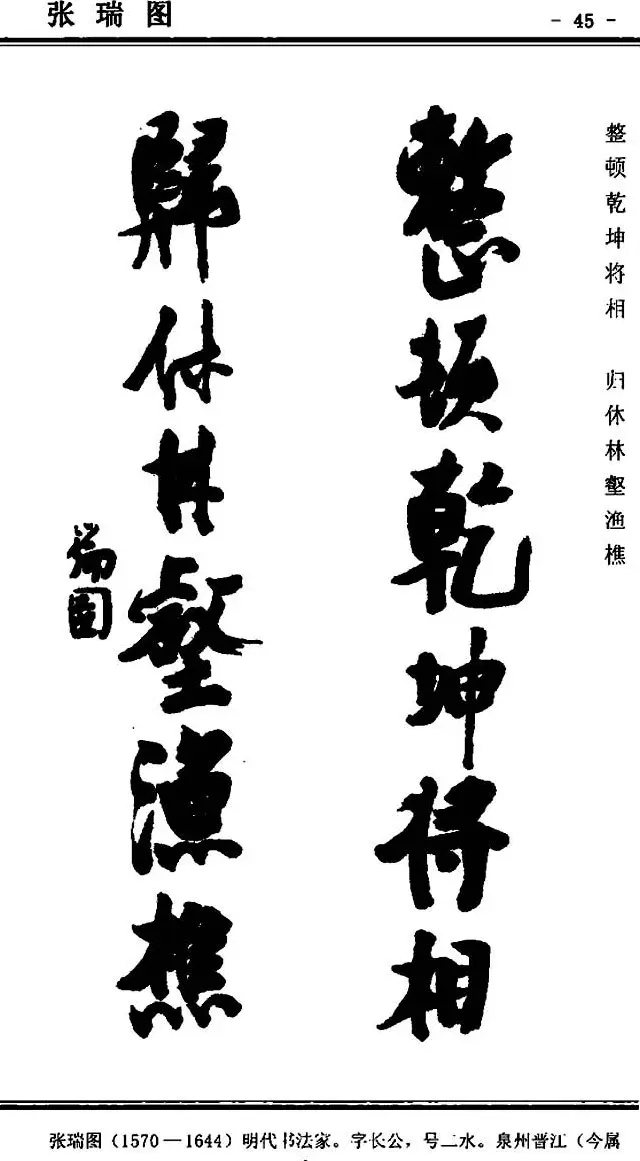 张瑞图
- 45 -
整顿乾坤将相 归休林壑渔樵
整頓乾坤将相
歸休林壑漁樵
瑞圖
张瑞图(1570—1644)明代书法家。字长公,号二水。泉州晋江(今属